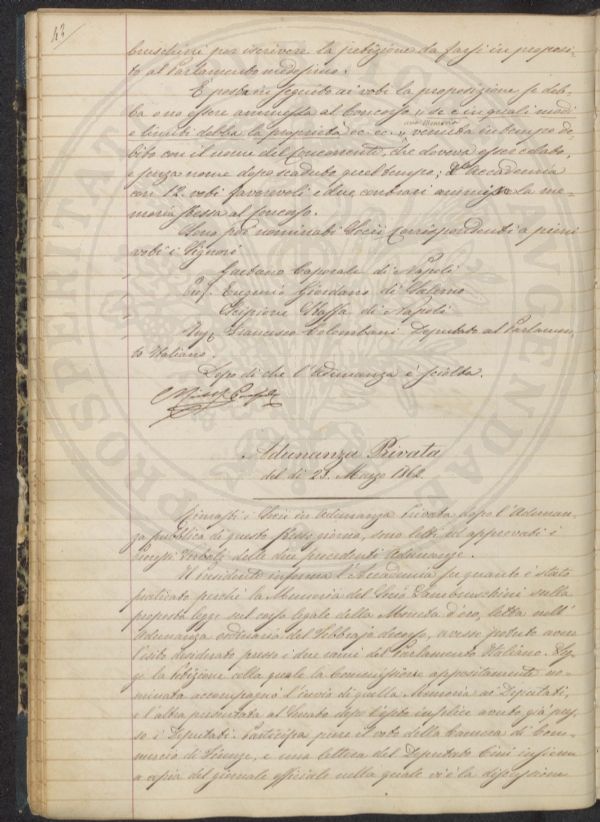 43
bruschini per iscrivere la petizione da farsi in proposi-
to al Parlamento medesimo.
E posta in seguito ai voti la proposizione se deb-
ba o no essere ammessa al Concorso " se e in quali modi
una Memoria
e limiti debba la proprietà ec. ec. " venuta in tempo de-
bito con il nome del Concorrente, che doveva esser celato,
e senza nome dopo scaduto quel tempo; L'accademia
con 12 voti favorevoli e due contrari ammise la me-
moria stessa al Concorso.
Sono poi nominati Socii Corrispondenti a pieni
voti i Signori
Gaetano Caporale di Napoli
Eugenio Giordano di Salerno
Scipione Staffa di Napoli
Francesco Colombani Deputato al Parlamen-
to Italiano.
Dopo di che l'Adunanza è sciolta.
Adunanza Privata
del dì 23. Marzo 1862.
Rimasti i Socii in adunanza privata dopo l'Adunan-
za pubblica di questo stesso giorno, sono letti ed approvati i
Processi Verbali delle due precedenti Adunanze.
Il Presidente informa l'Accademia su quanto è stato
praticato perché la Memoria del Socio Lambruschini sulla
proposta legge sul corso legale della Moneta d'oro, letta nell'
Adunanza ordinaria del Febbrajo decorso, avesse potuto avere
l'esito desiderato presso i due rami del Parlamento Italiano. Leg-
ge la Petizione colla quale la Commissione appositamente no-
minata accompagnò l'invio di quella Memoria ai Deputati,
e l'altra presentata al Senato dopo l'esito infelice avuto già pres-
so i Deputati. Partecipa pure il voto della Camera di Com-
mercio di Firenze, e una lettera del Deputato Cini insieme
a copia del giornale officiale nella quale vi è la discussione
PROSPERITATI PUBLICAE AUGENDAE